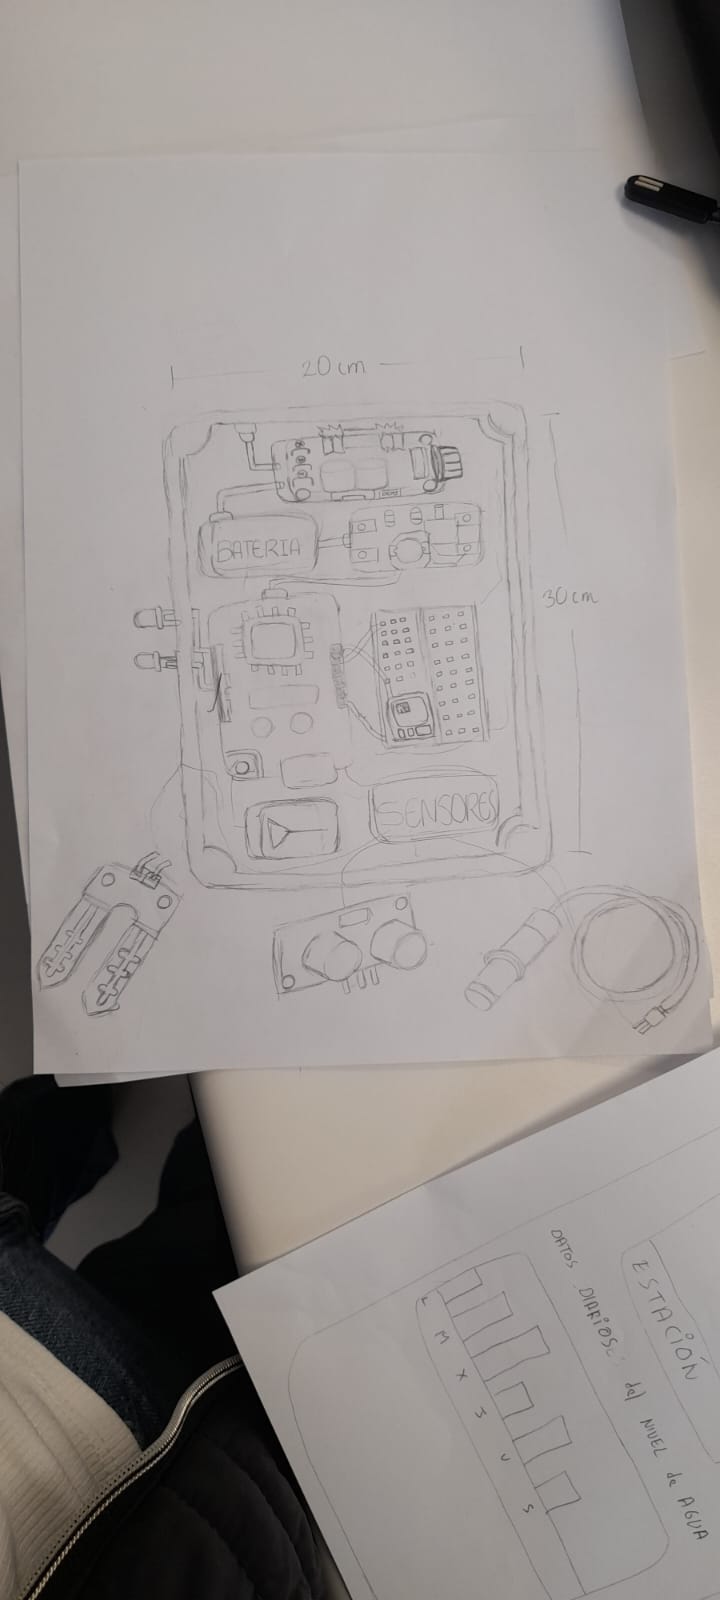 20 cm
BATERIA
30 cm
SENSORES
ESTACIÓN
DATOS DIARIOS: del NIVEL de AGUA
L M X J V S